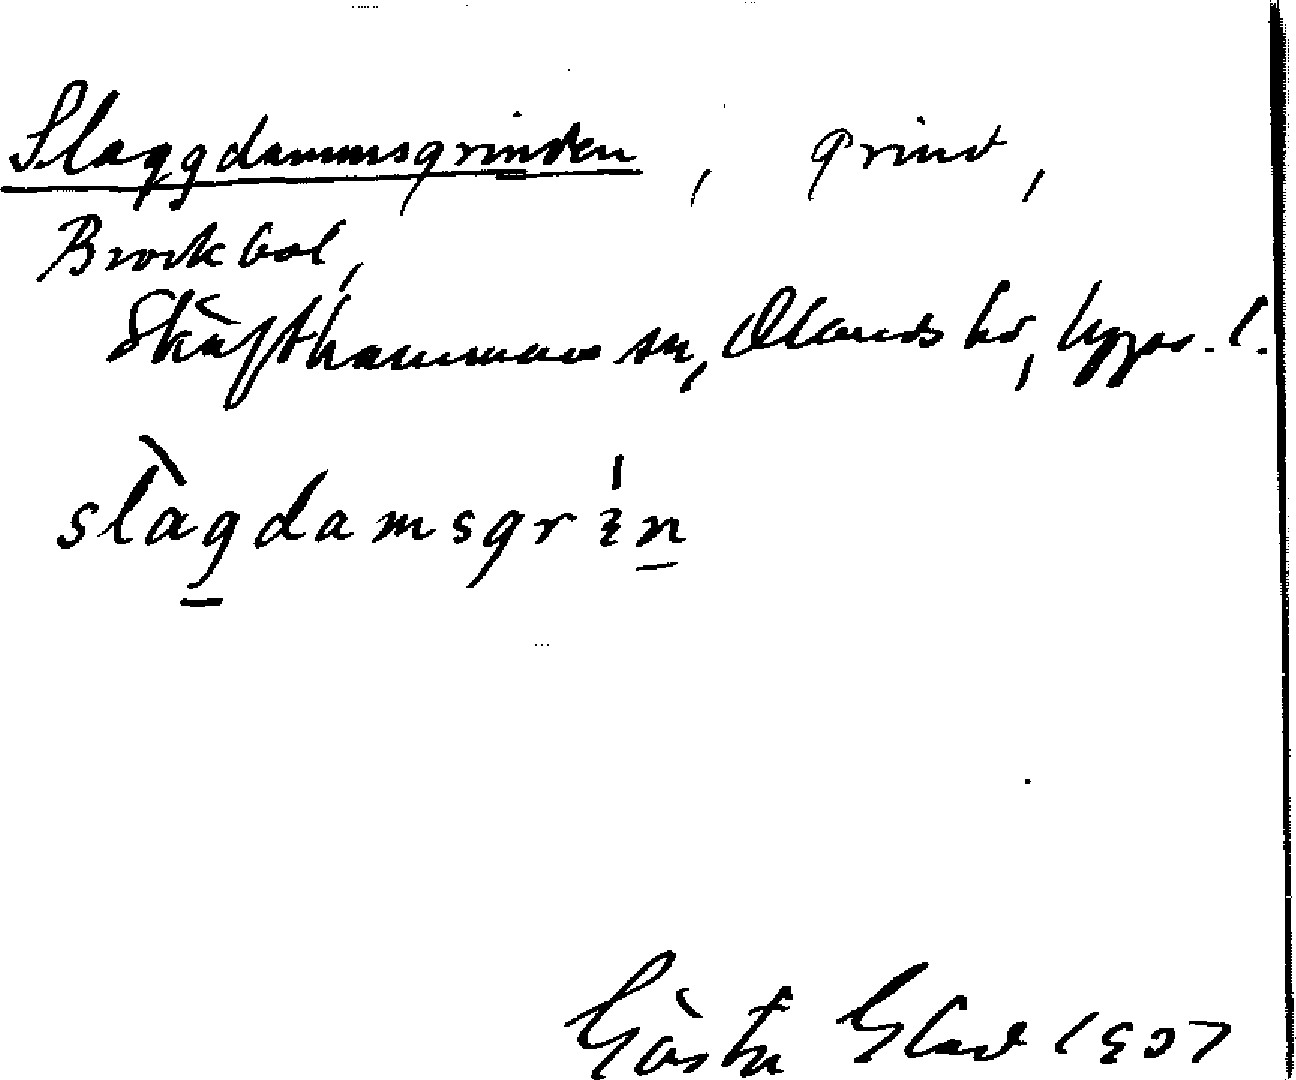 Slaggdammsgrinden, grind,
Brockbol,
Skäfthammars sn, Olands hd, Uppsa. l.
slàgdamsgrın
Gösta Glad 1907